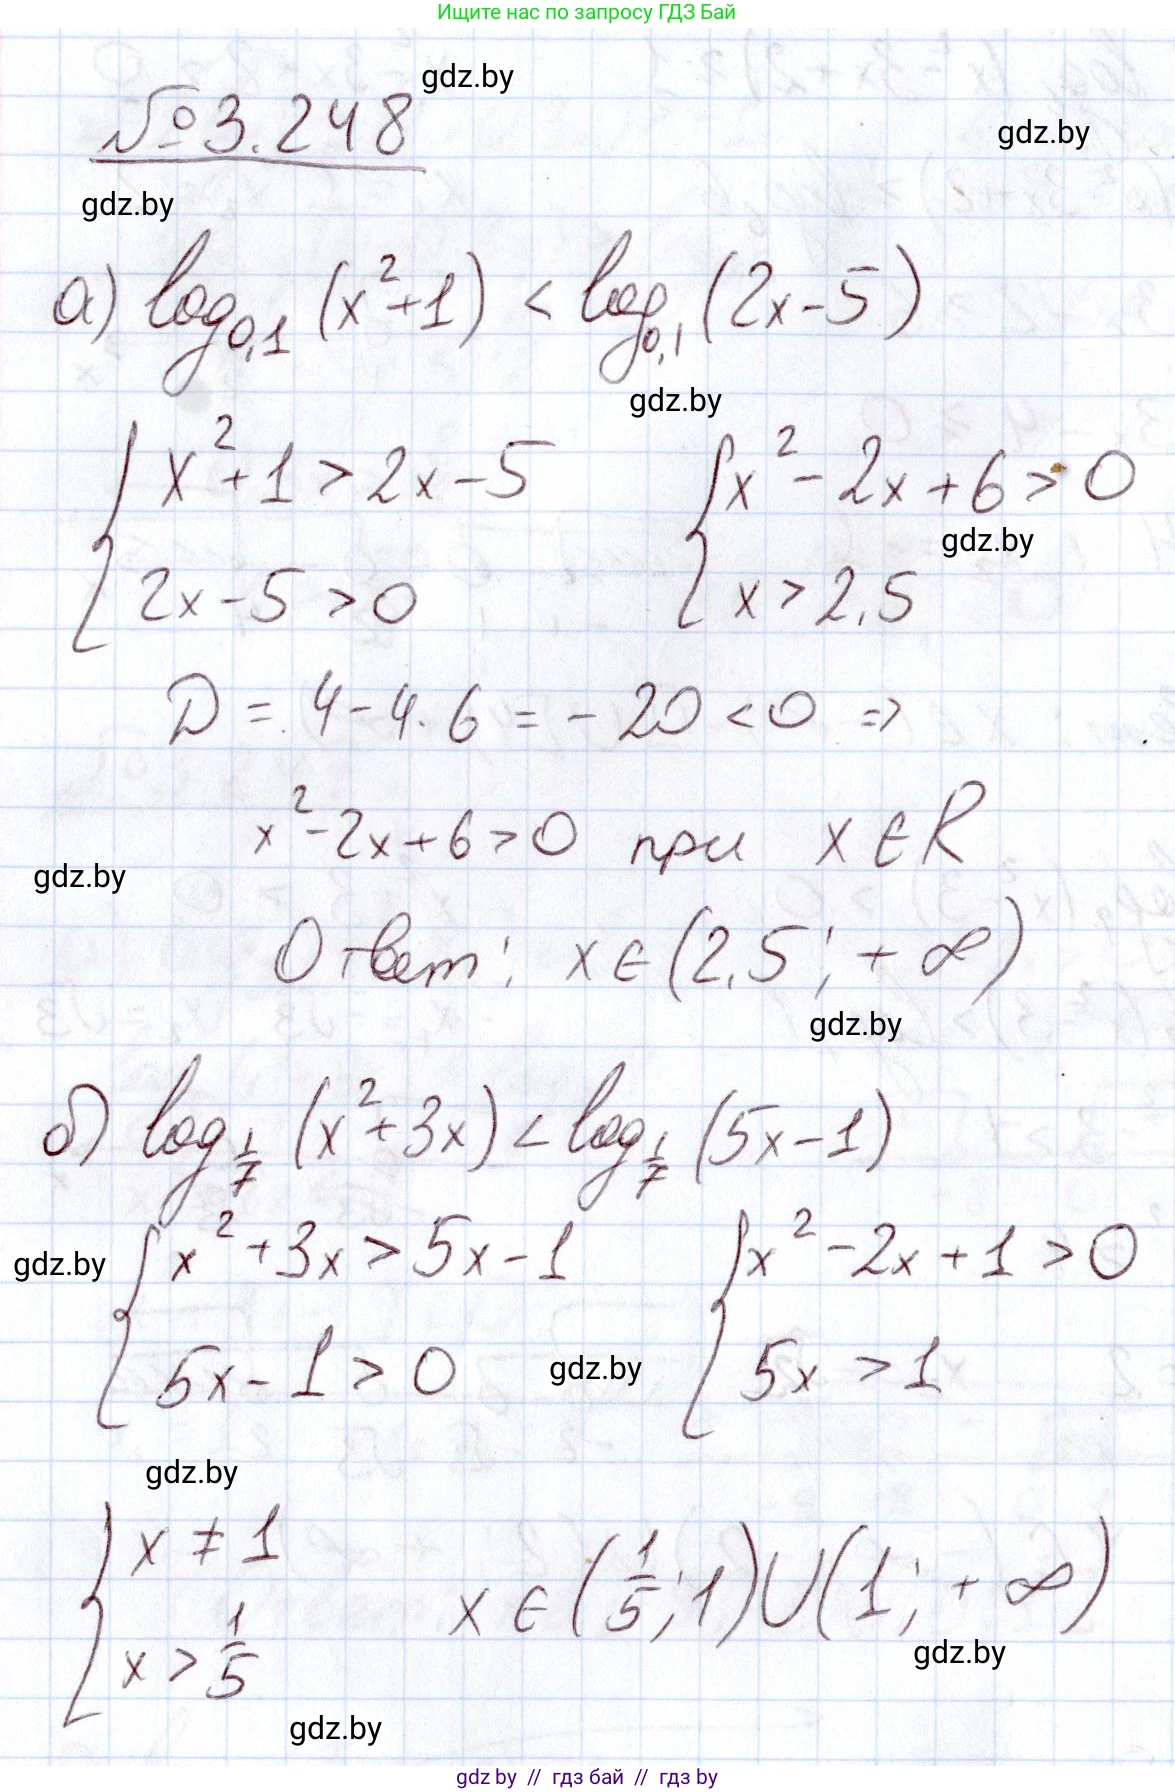 Ищите нас по запросу ГДЗ Бай
gdz.by
№3.248
gdz.by
gdz.by
а) log₀,₁ (x²+1) < log₀,₁ (2x-5)
gdz.by
{ x²+1 > 2x-5 { x²-2x+6 > 0
gdz.by
2x-5 > 0 x > 2,5
D = 4-4·6 = -20 < 0 =>
x²-2x+6 > 0 при x ∈ R
gdz.by
Ответ: x ∈ (2,5; +∞)
gdz.by
б) log_{1/7} (x²+3x) < log_{1/7} (5x-1)
gdz.by
{ x²+3x > 5x-1 { x²-2x+1 > 0
5x-1 > 0 gdz.by 5x > 1
gdz.by
{ x ≠ 1
x > 1/5 x ∈ (1/5; 1) ∪ (1; +∞)
gdz.by
gdz.by
gdz.by // гдз бай // гдз by